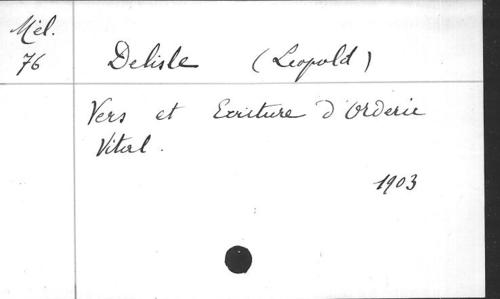 Mél.
76
Delisle (Leopold)
Vers et Ecriture d'Orderic
Vital.
1903